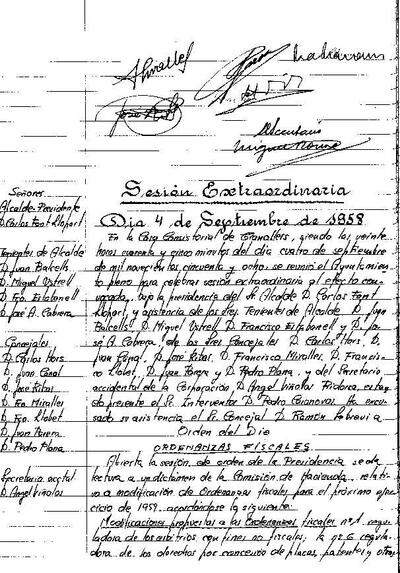 El Secretario
Sesión Extraordinaria
Dia 4 de Septiembre de 1958
Señores
Alcalde-Presidente
D. Carlos Font Llopart
Tenientes de Alcalde
D. Juan Balcells
D. Miguel Ustrell
D. Fco. Estabanell
D. José A. Cabrera
Concejales
D. Carlos Hors
D. Juan Canal
D. José Ritas
D. Fco. Miralles
D. Fco. Llobet
D. Juan Parera
D. Pedro Plana
Secretario acctal
D. Angel Viñolas
En la Casa Consistorial de Granollers, siendo las veinte
horas cuarenta y cinco minutos del día cuatro de septiembre
de mil novecientos cincuenta y ocho, se reunió el Ayuntamiento
pleno para celebrar sesión extraordinaria al efecto con-
vocada, bajo la presidencia del Sr. Alcalde D. Carlos Font
Llopart, y asistencia de los tres Tenientes de Alcalde D. Juan
Balcells, D. Miguel Ustrell, D. Francisco Estabanell y D. Jo-
sé A. Cabrera, de los tres Concejales D. Carlos Hors, D.
Juan Canal, D. José Ritas, D. Francisco Miralles, D. Francis-
co Llobet, D. Juan Parera y D. Pedro Plana, y del Secretario
accidental de la Corporación, D. Angel Viñolas Fidorca, estan-
do presente el Sr. Interventor D. Pedro Casanovas. Ha excu-
sado su asistencia el Sr. Concejal D. Ramón
Orden del Dia
ORDENANZAS FISCALES
Abierta la sesión, de orden de la Presidencia se da
lectura a un dictamen de la Comisión de Hacienda, relati-
vo a modificación de Ordenanzas fiscales para el próximo eje-
cicio de 1959, acordándose lo siguiente:
Modificaciones propuestas a las Ordenanzas fiscales nº 1, regu-
ladora de los arbitrios con fines no fiscales; la nº 6 regula-
dora de los derechos por concesión de placas, patentes y otros